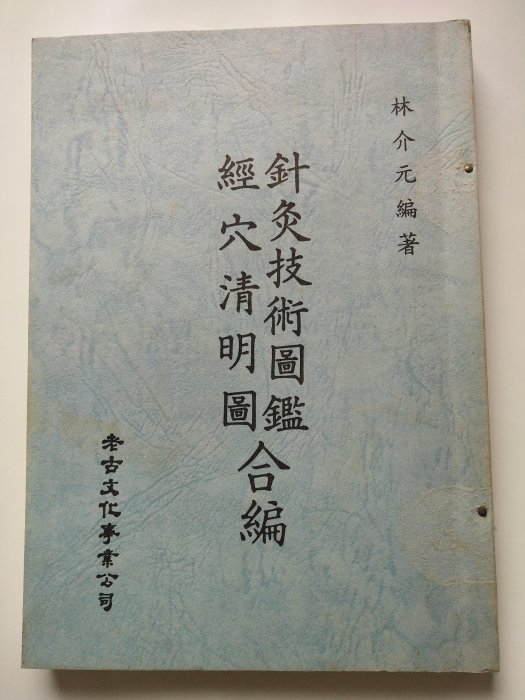 林介元編著
針灸技術圖鑑
經穴清明圖
合編
老古文化事業公司